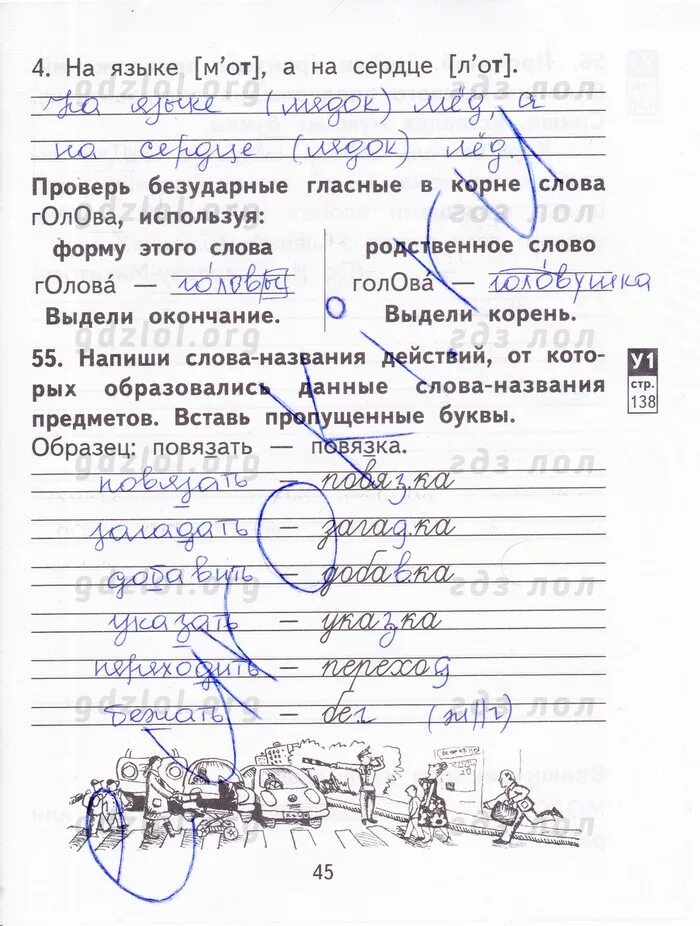 4. На языке [м’от], а на сердце [л’от].
На языке (мядок) мёд, а
на сердце (лядок) лёд.
Проверь безударные гласные в корне слова
гОлОва, используя:
форму этого слова
гОлова́ — го́ловы
Выдели окончание.
родственное слово
голОва́ — голо́вушка
Выдели корень.
55. Напиши слова-названия действий, от кото-
рых образовались данные слова-названия
предметов. Вставь пропущенные буквы.
Образец: повязать — повязка.
У1
стр.
138
повязать — повязка
загадать — загадка
добавить — добавка
указать — указка
переходить — переход
бежать — бег (ж||г)
45
gdzlol.org
гдз лол